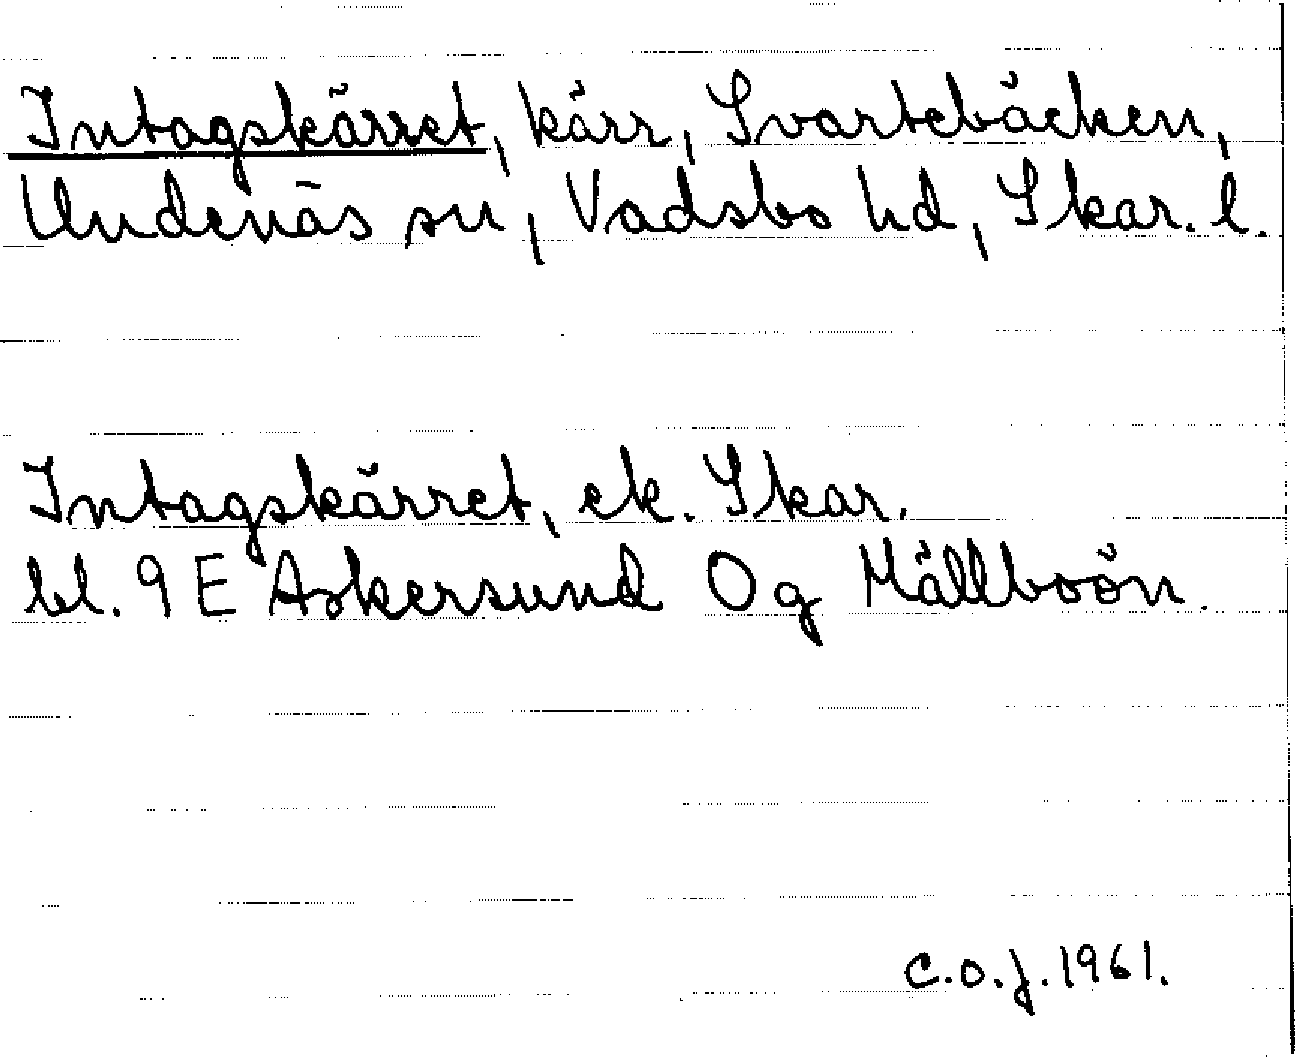 Intagskärret, kärr, Svartebäcken,
Undenäs sn, Vadsbo hd, Skar. l.
Intagskärret, ek. Skar.
bl. 9 E Askersund 0g Mällboön.
C.O.J. 1961.